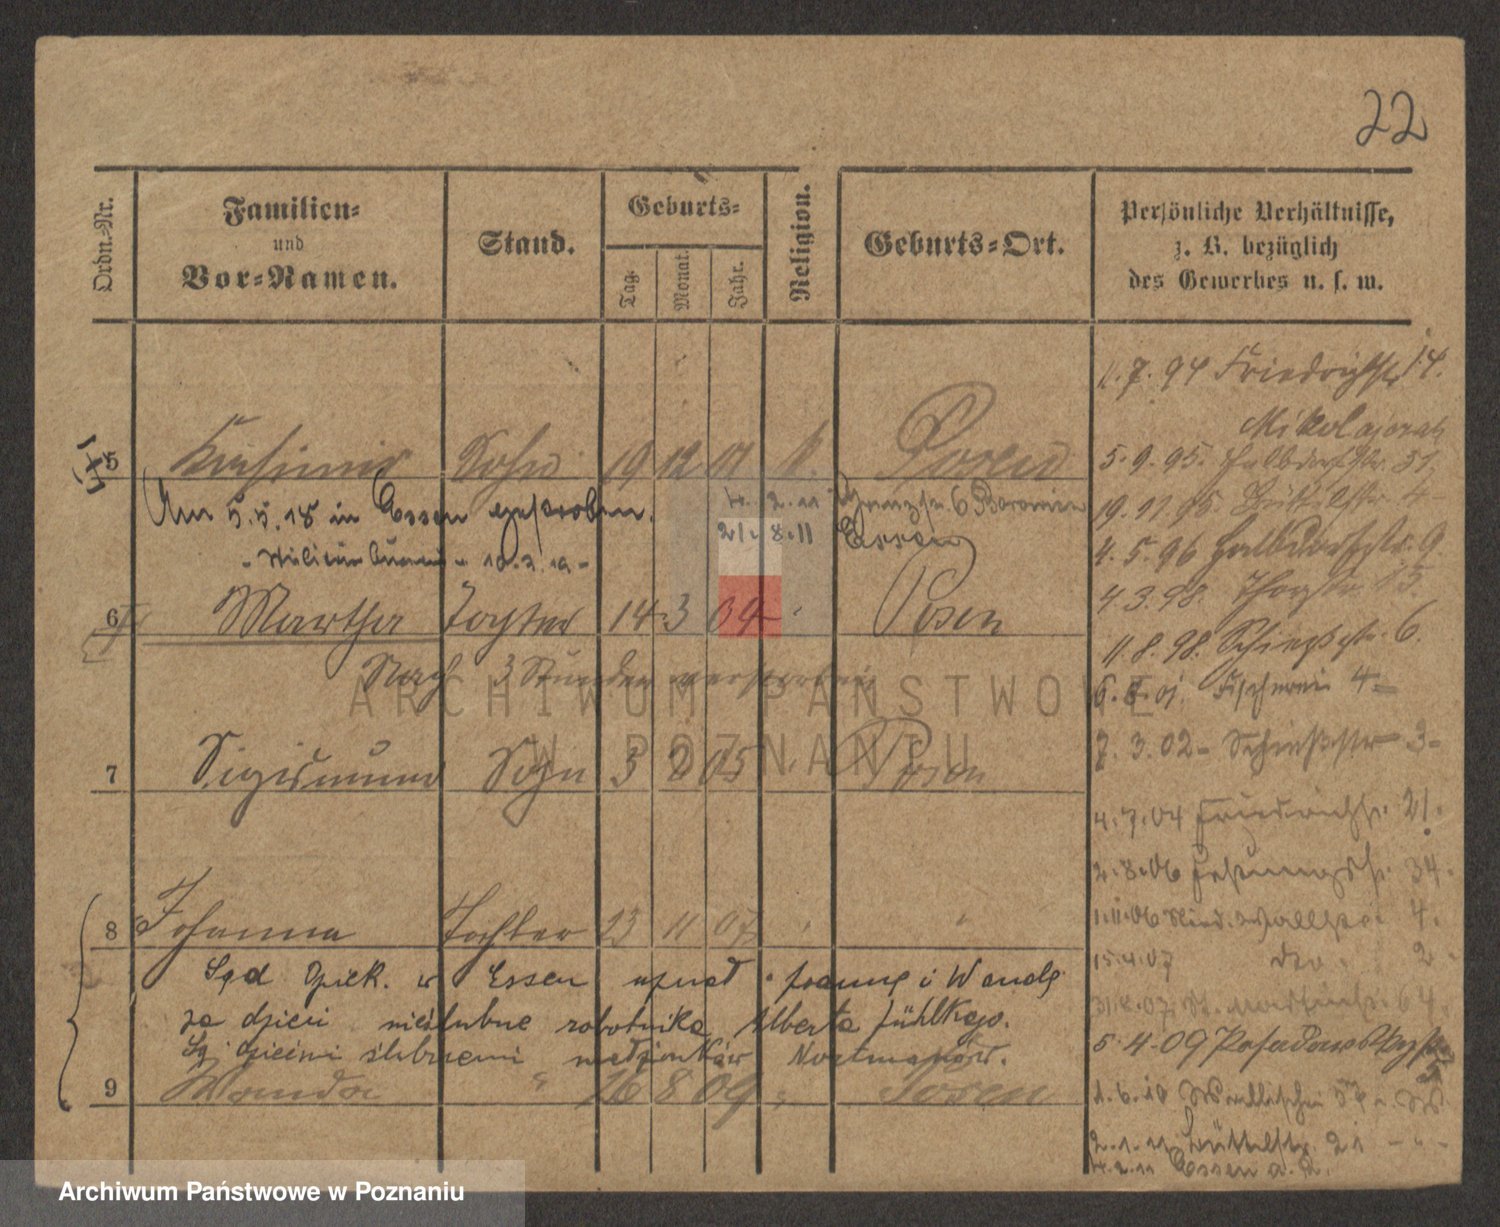 22
Ordn.-Nr.
Familien-
und
Vor-Namen.
Stand.
Geburts-
Tag.
Monat.
Jahr.
Religion.
Geburts-Ort.
Persönliche Verhältnisse,
z. B. bezüglich
des Gewerbes u. s. w.
5 Kasimir Sohn 19 12 01 k. Posen
Am 5.5.18 in Essen gestorben.
4. 2. 11 Grenzstr. 6 Baronin
21. 8. 11 Essen
6 Martha Tochter 14 3 04 Posen
Nach 3 Stunden verstorben
7 Sigismund Sohn 3 2 05 Posen
8 Johanna Tochter 23 11 07
Sąd Opiek. w Essen uznał Joannę i Wandę
za dzieci nieślubne robotnika Alberta Jühlkego.
Są dziećmi ślubnemi małżonków
9 Wanda 26 8 09 Posen
11. 7. 94 Friedrichstr 14.
Mikolajczak
5. 9. 95. Halbdorfstr. 31.
19. 11 95. Büttelstr. 4
4. 5. 96 Halbdorfstr. 9.
4 3. 98. Thorstr. 15.
11. 8. 98. Schiessstr. 6.
6. 8. 01. Fischerei 4
7. 3. 02 Schiessstr 3
4. 7. 04 Friedrichstr. 21.
2. 8. 06 Festungsstr. 34.
1. 11. 06 Wallstr. 4.
15. 4. 07 dto. 2
64.
5. 4. 09 Posadowskystr
1. 6. 10 Wallischei
2. 1. 11 Büttelstr. 21
4. 2. 11 Essen a. R.
ARCHIWUM PAŃSTWOWE
W POZNANIU
Archiwum Państwowe w Poznaniu